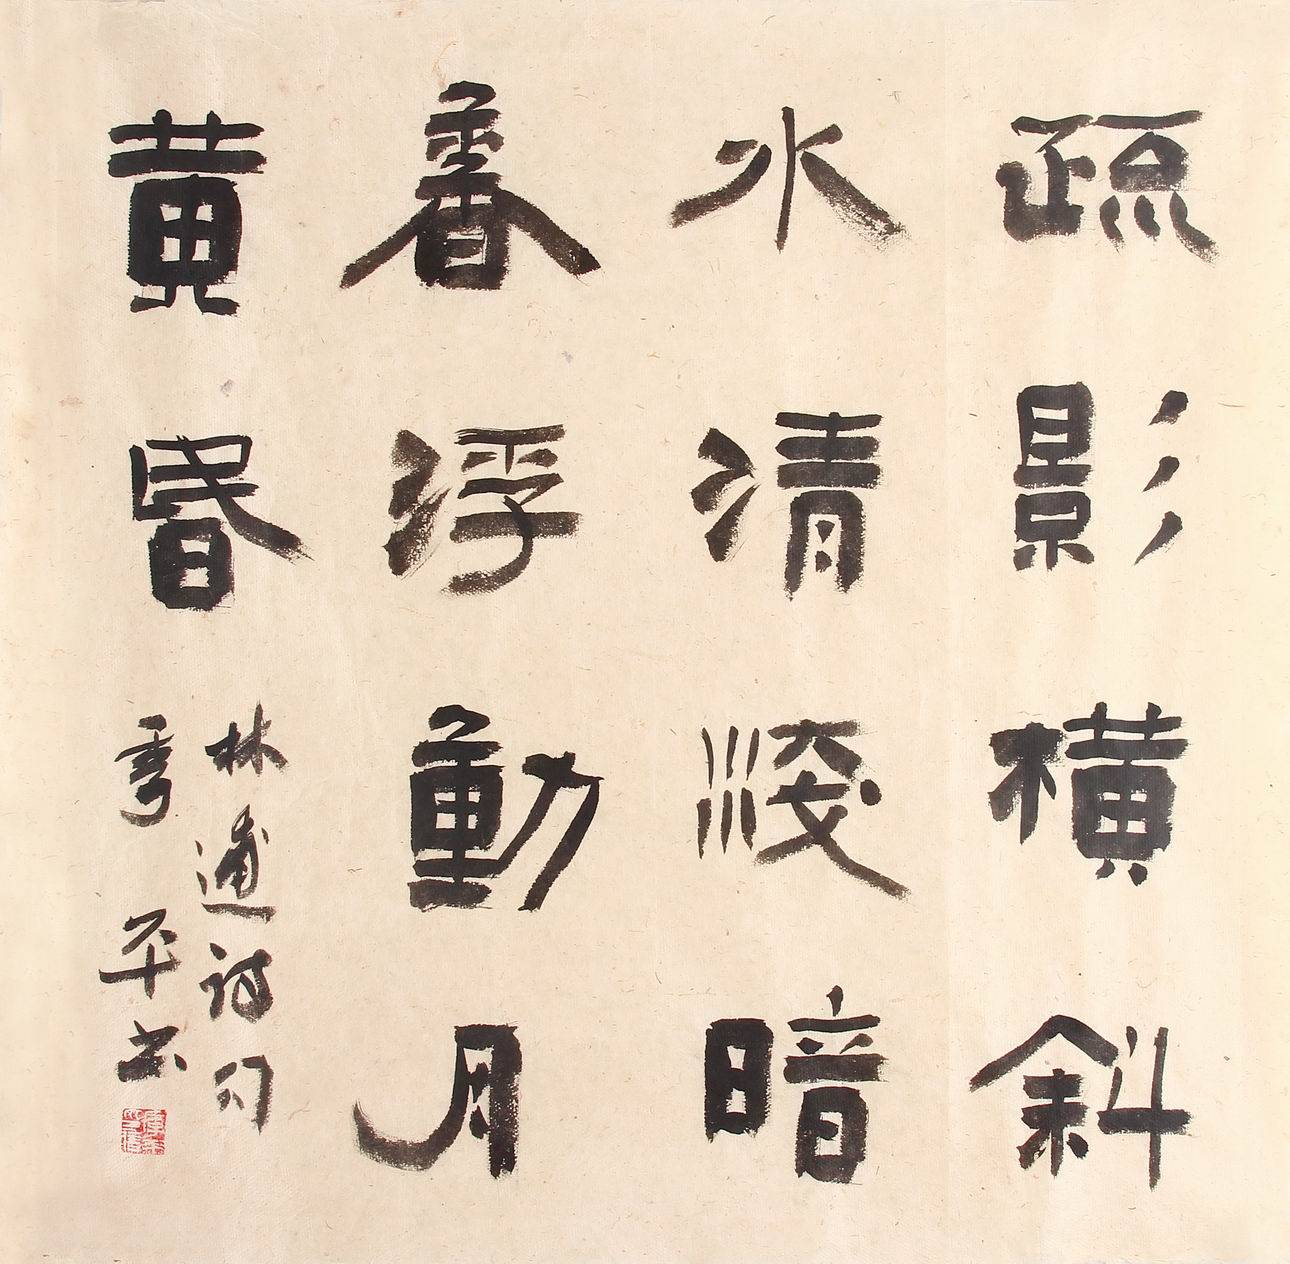 疏影橫斜
水清淺暗
香浮動月
黃昏
林逋詩句
季平书